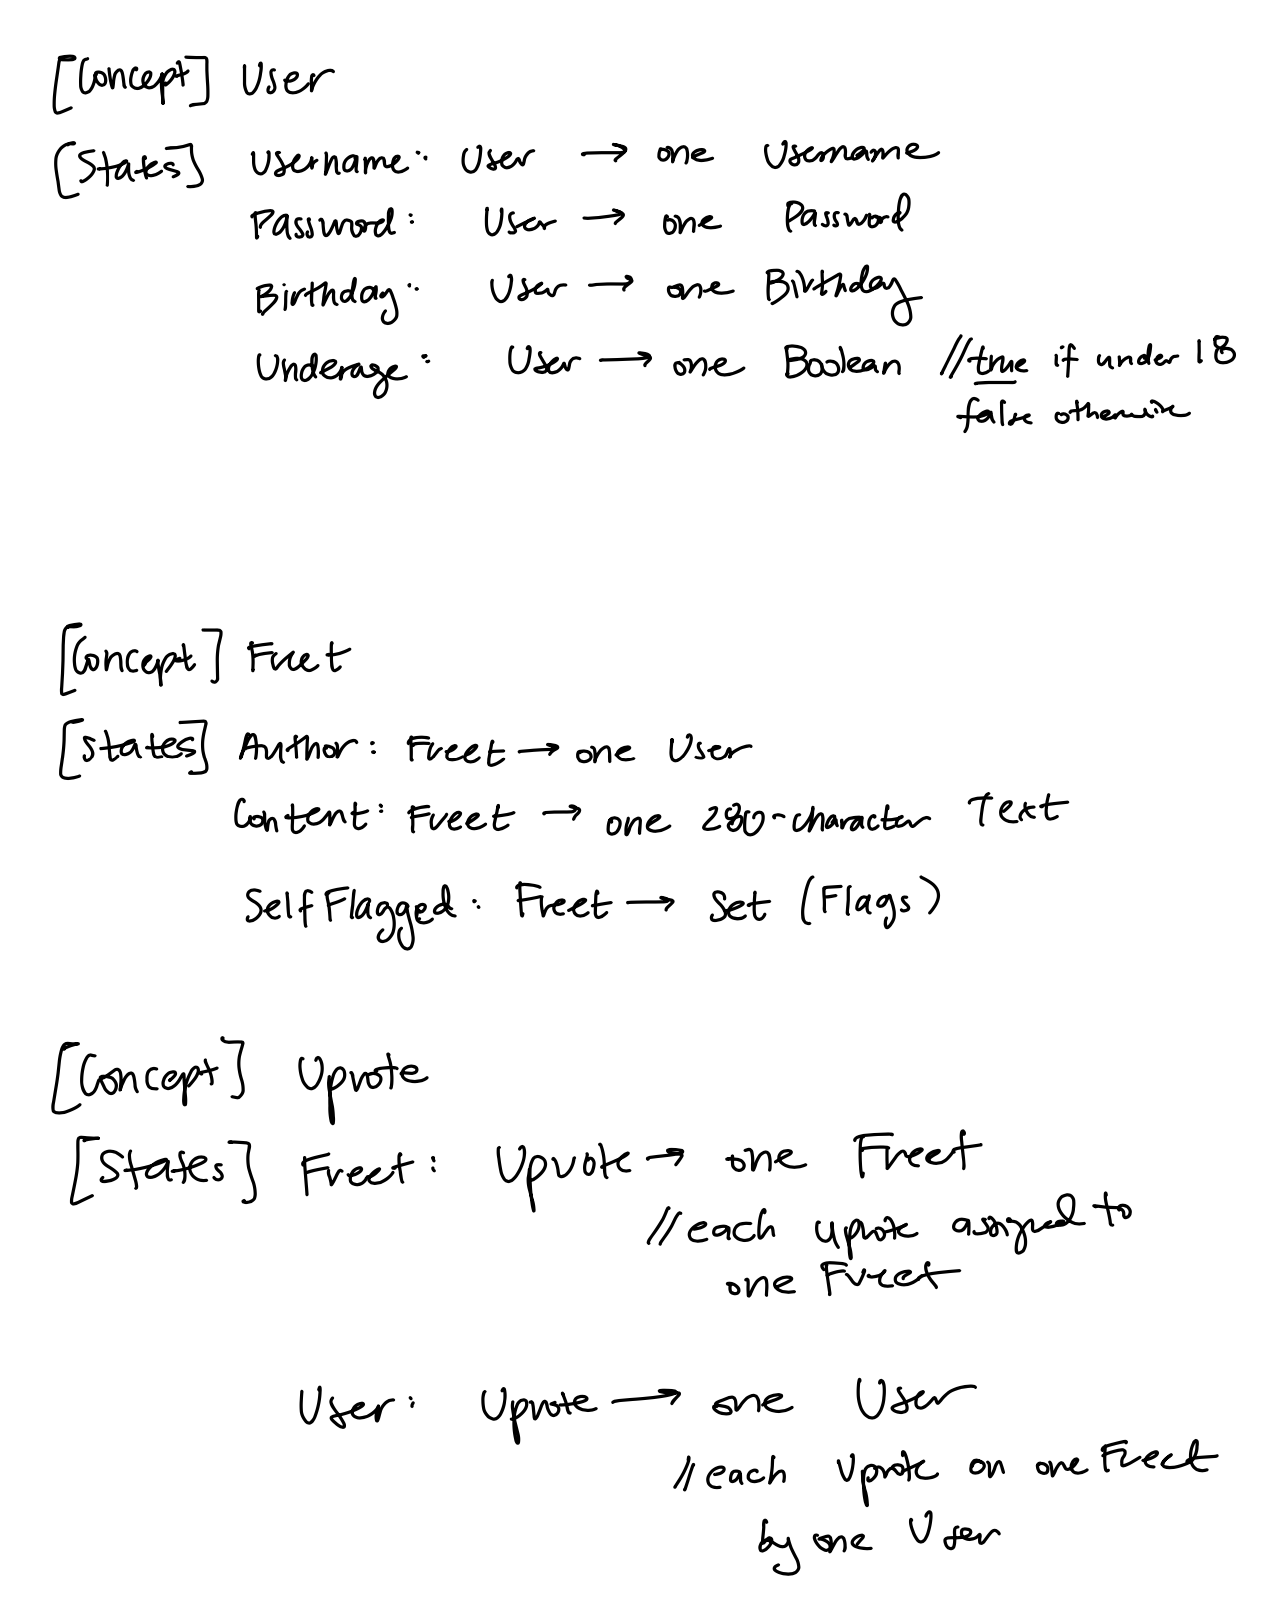 [Concept] User
[States] Username: User → one Username
Password: User → one Password
Birthday: User → one Birthday
Underage: User → one Boolean //true if under 18
false otherwise
[Concept] Freet
[States] Author: Freet → one User
Content: Freet → one 280-character Text
SelfFlagged: Freet → Set (Flags)
[Concept] Upvote
[States] Freet: Upvote → one Freet
//each upvote assigned to
one Freet
User: Upvote → one User
//each Upvote on one Freet
by one User